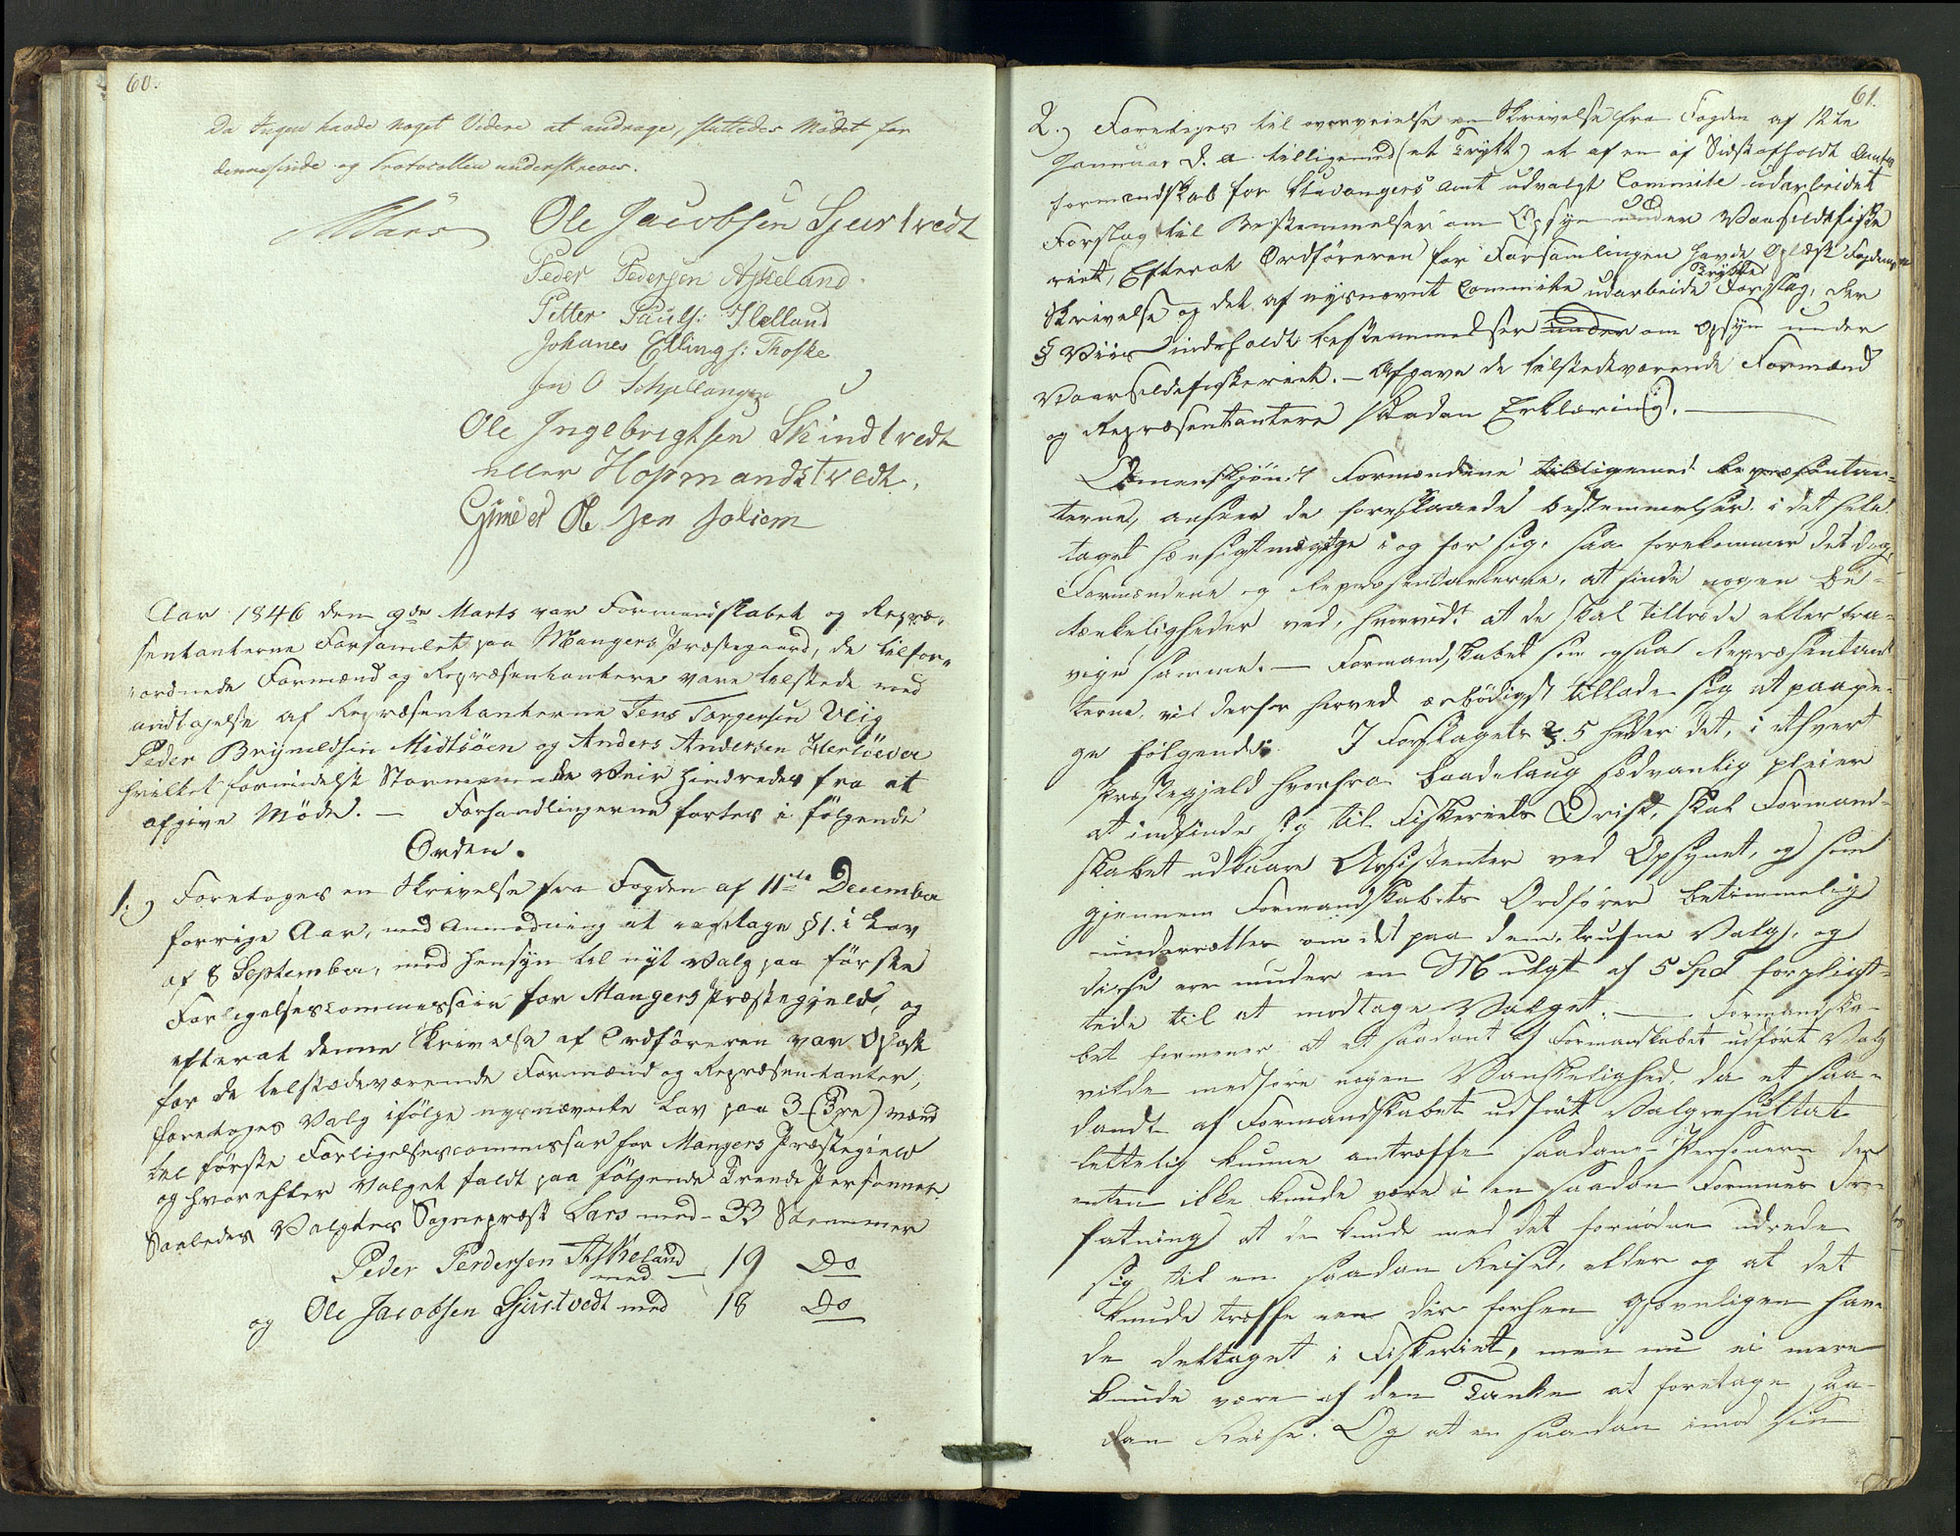 60.
Da Ingen havde noget Videre at andrage, sluttedes Mödet for
dennesinde og Protocollen underskreves.
Ole Jacobsen Sjurtvedt
Peder Pedersen Askeland
Petter Pauls: Helland
Johanes Ellings: Toske
Ole Ingebrigtsen Skindtvedt
eller Hopmandstvedt.
Aar 1846 den 9de Marts var Formandskabet og Repræ-
sentanterne Forsamlet paa Mangers Præstegaard, de tilfor-
ordnede Formænd og Repræsentantere vare tilstede med
undtagelse af Repræsentanterne Jens Torgersen Ulig
Peder Brynildsen Midtsöen og Anders Andersen Hertöever
hvilket formedelst Stormende Veir hindredes fra at
afgive Möde. — Forhandlingerne fortes i fölgende
Orden.
1.) Foretoges en Skrivelse fra Fogden af 11te December
forrige Aar, med Anmodning at iagttage § 1. i Lov
af 8 September, med Hensyn til nyt Valg paa förste
Forligelsescommission for Mangers Præstegjeld, og
efterat denne Skrivelse af Ordföreren var Oplæst
for de tilstædeværende Formænd og Repræsentanter,
foretoges Valg ifölge nysnævnte Lov paa 3 (Tre) Mænd
til förste Forligelsescommissær for Mangers Præstegield
og hvorefter Valget faldt paa fölgende Trende Personner
Saaledes Valgtes Sognepræst Lars med - 33 Stemmer
Peder Perdersen Askeland
med — 19 Do
og Ole Jacobsen Sjurtvedt med 18 Do
61.
2.) Foretoges til overveielse en Skrivelse fra Fogden af 12te
Januar d. A. tilligemed (et Trykt) et af en af Sidstafholdt Amts
formandskab for Stavangers Amt udvalgt Committe udarbeidet
Forslag til Bestemmelser om Opsyn under Vaarsildfiske
riet, Efterat Ordföreren for Forsamlingen havde Oplæst Fogdens
Trykte
Skrivelse og det af nysnævnt Committe udarbeide Forslag, der
§ Viis indeholdt bestemmelser under om Opsyn under
Vaarsildefiskeriet. — Afgave de tilstedeværende Formænd
og Repræsentantere saadan Erklæring. —
Omenskjöndt Formændene tilligemed Repræsentan-
terne, ansee de foreslaaede bestemmelser i det hele
taget hensigtmæssige i og for sig, saa forekommer det dog
Formændene og Repræsentanterne, at finde nogen Be-
tænkeligheder ved, hvorvidt at de skal tiltræde eller fra-
vige samme. — Formandskabet som ogsaa Repræsentan
terne, vil derfor herved ærbödigst tillade sig at paape-
ge fölgende: I Forslagets § 5 heder det, i ethvert
Præstegjeld hvorfra Baadelaug sædvanlig pleier
at indfinde sig til Fiskeriets Drift, skal Formand-
skabet udkaare Assistenter ved Opsynet, og som
gjennem Formandskabets Ordförer betimmelig
underrettes om det paa dem trufne Valg, og
disse ere under en Mulgt af 5 Spd forpligt-
tede til at modtage Valget. — Formandska-
bet formener at et saadant af Formanskabet udfört Valg
vilde medföre nogen Vanskelighed, da et saa-
dandt af Formandskabet udfört Valgresultat
lettelig kunne antræffe saadane Personer der
enten ikke kunde være i en saadan Formues For-
fatning at de kunde med det fornödne udrede
sig til en saadan Reise, eller og at det
kunde træffe een der forhen Gjevnligen hav-
de deltaget i Fiskeriet, men nu ei mere
kunde være af den Tanke at foretage saa-
dan Reise. Og at en saadan imod sin